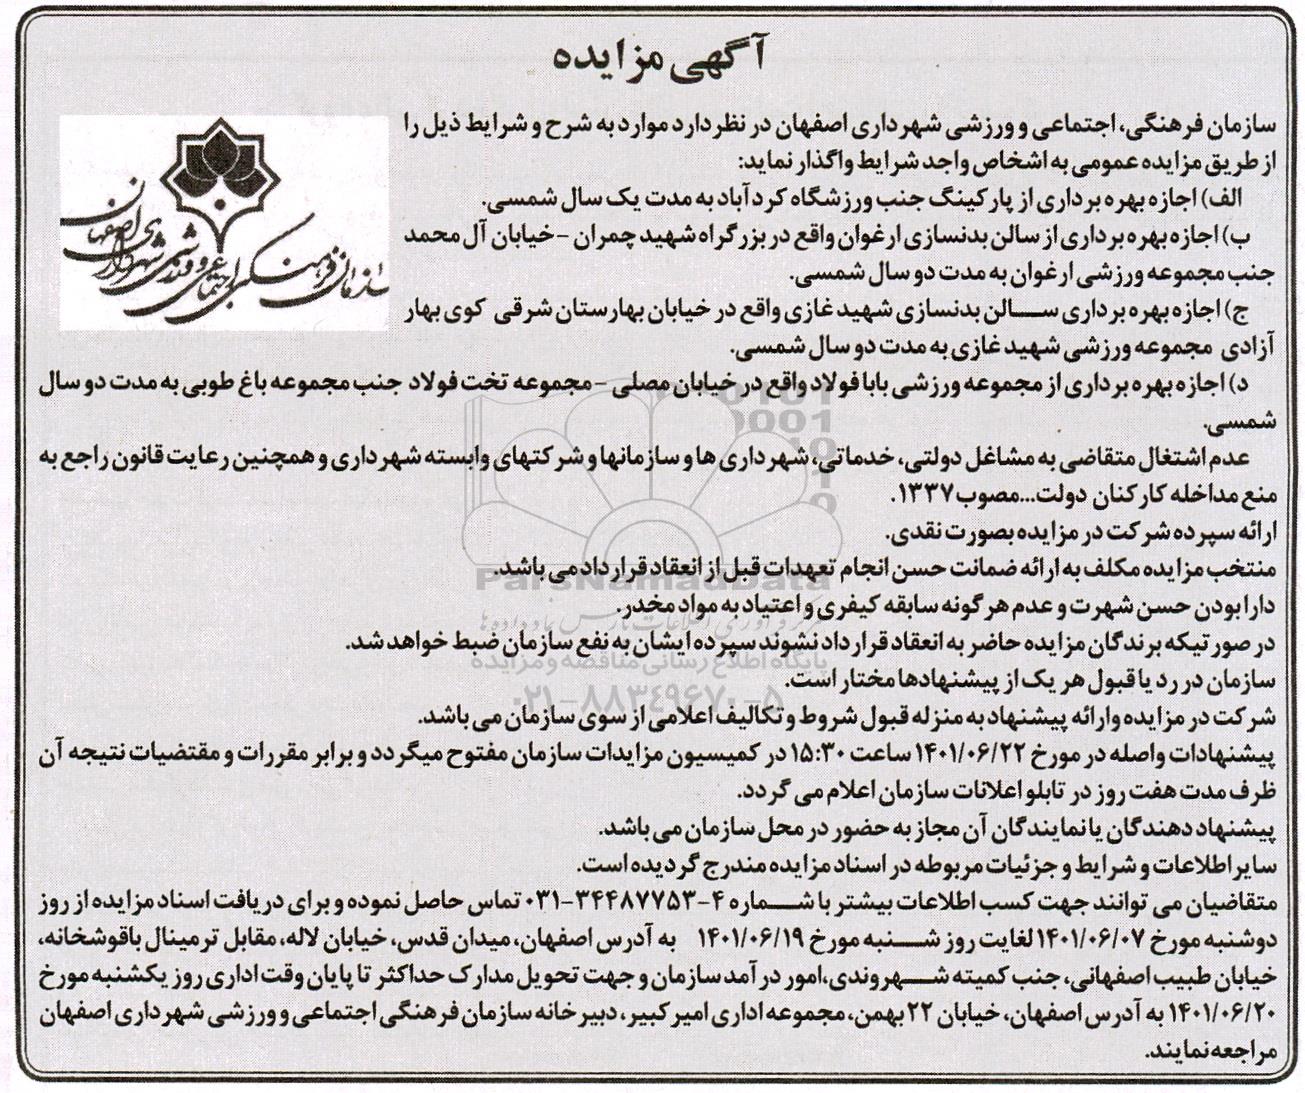 آگهی مزایده
سازمان فرهنگی، اجتماعی و ورزشی شهرداری اصفهان
سازمان فرهنگی، اجتماعی و ورزشی شهرداری اصفهان در نظر دارد موارد به شرح و شرایط ذیل را
از طریق مزایده عمومی به اشخاص واجد شرایط واگذار نماید:
الف) اجازه بهره برداری از پارکینگ جنب ورزشگاه کردآباد به مدت یک سال شمسی.
ب) اجازه بهره برداری از سالن بدنسازی ارغوان واقع در بزرگراه شهید چمران - خیابان آل محمد
جنب مجموعه ورزشی ارغوان به مدت دو سال شمسی.
ج) اجازه بهره برداری ســـالن بدنسازی شهید غازی واقع در خیابان بهارستان شرقی کوی بهار
آزادی مجموعه ورزشی شهید غازی به مدت دو سال شمسی.
د) اجازه بهره برداری از مجموعه ورزشی بابا فولاد واقع در خیابان مصلی - مجموعه تخت فولاد جنب مجموعه باغ طوبی به مدت دو سال
شمسی.
عدم اشتغال متقاضی به مشاغل دولتی، خدماتی، شهرداری ها و سازمانها و شرکتهای وابسته شهرداری و همچنین رعایت قانون راجع به
منع مداخله کارکنان دولت...مصوب ۱۳۳۷.
ارائه سپرده شرکت در مزایده بصورت نقدی.
منتخب مزایده مکلف به ارائه ضمانت حسن انجام تعهدات قبل از انعقاد قرارداد می باشد.
دارا بودن حسن شهرت و عدم هرگونه سابقه کیفری و اعتیاد به مواد مخدر.
در صورتیکه برندگان مزایده حاضر به انعقاد قرارداد نشوند سپرده ایشان به نفع سازمان ضبط خواهد شد.
سازمان در رد یا قبول هر یک از پیشنهادها مختار است.
شرکت در مزایده وارائه پیشنهاد به منزله قبول شروط و تکالیف اعلامی از سوی سازمان می باشد.
پیشنهادات واصله در مورخ ۱۴۰۱/۰۶/۲۲ ساعت ۱۵:۳۰ در کمیسیون مزایدات سازمان مفتوح میگردد و برابر مقررات و مقتضیات نتیجه آن
ظرف مدت هفت روز در تابلو اعلانات سازمان اعلام می گردد.
پیشنهاد دهندگان یا نمایندگان آن مجاز به حضور در محل سازمان می باشد.
سایر اطلاعات و شرایط و جزئیات مربوطه در اسناد مزایده مندرج گردیده است.
متقاضیان می توانند جهت کسب اطلاعات بیشتر با شـــماره ۴-۰۳۱-۳۴۴۸۷۷۵۳ تماس حاصل نموده و برای دریافت اسناد مزایده از روز
دوشنبه مورخ ۱۴۰۱/۰۶/۰۷ لغایت روز شـــنبه مورخ ۱۴۰۱/۰۶/۱۹ به آدرس اصفهان، میدان قدس، خیابان لاله، مقابل ترمینال باقوشخانه،
خیابان طبیب اصفهانی، جنب کمیته شـــهروندی، امور درآمد سازمان و جهت تحویل مدارک حداکثر تا پایان وقت اداری روز یکشنبه مورخ
۱۴۰۱/۰۶/۲۰ به آدرس اصفهان، خیابان ۲۲ بهمن، مجموعه اداری امیرکبیر، دبیرخانه سازمان فرهنگی اجتماعی و ورزشی شهرداری اصفهان
مراجعه نمایند.
ParsNamadData
مرکز فرآوری اطلاعات پارس نماد داده ها
پایگاه اطلاع رسانی مناقصه و مزایده
۰۲۱-۸۸۳۴۹۶۷۰-۵